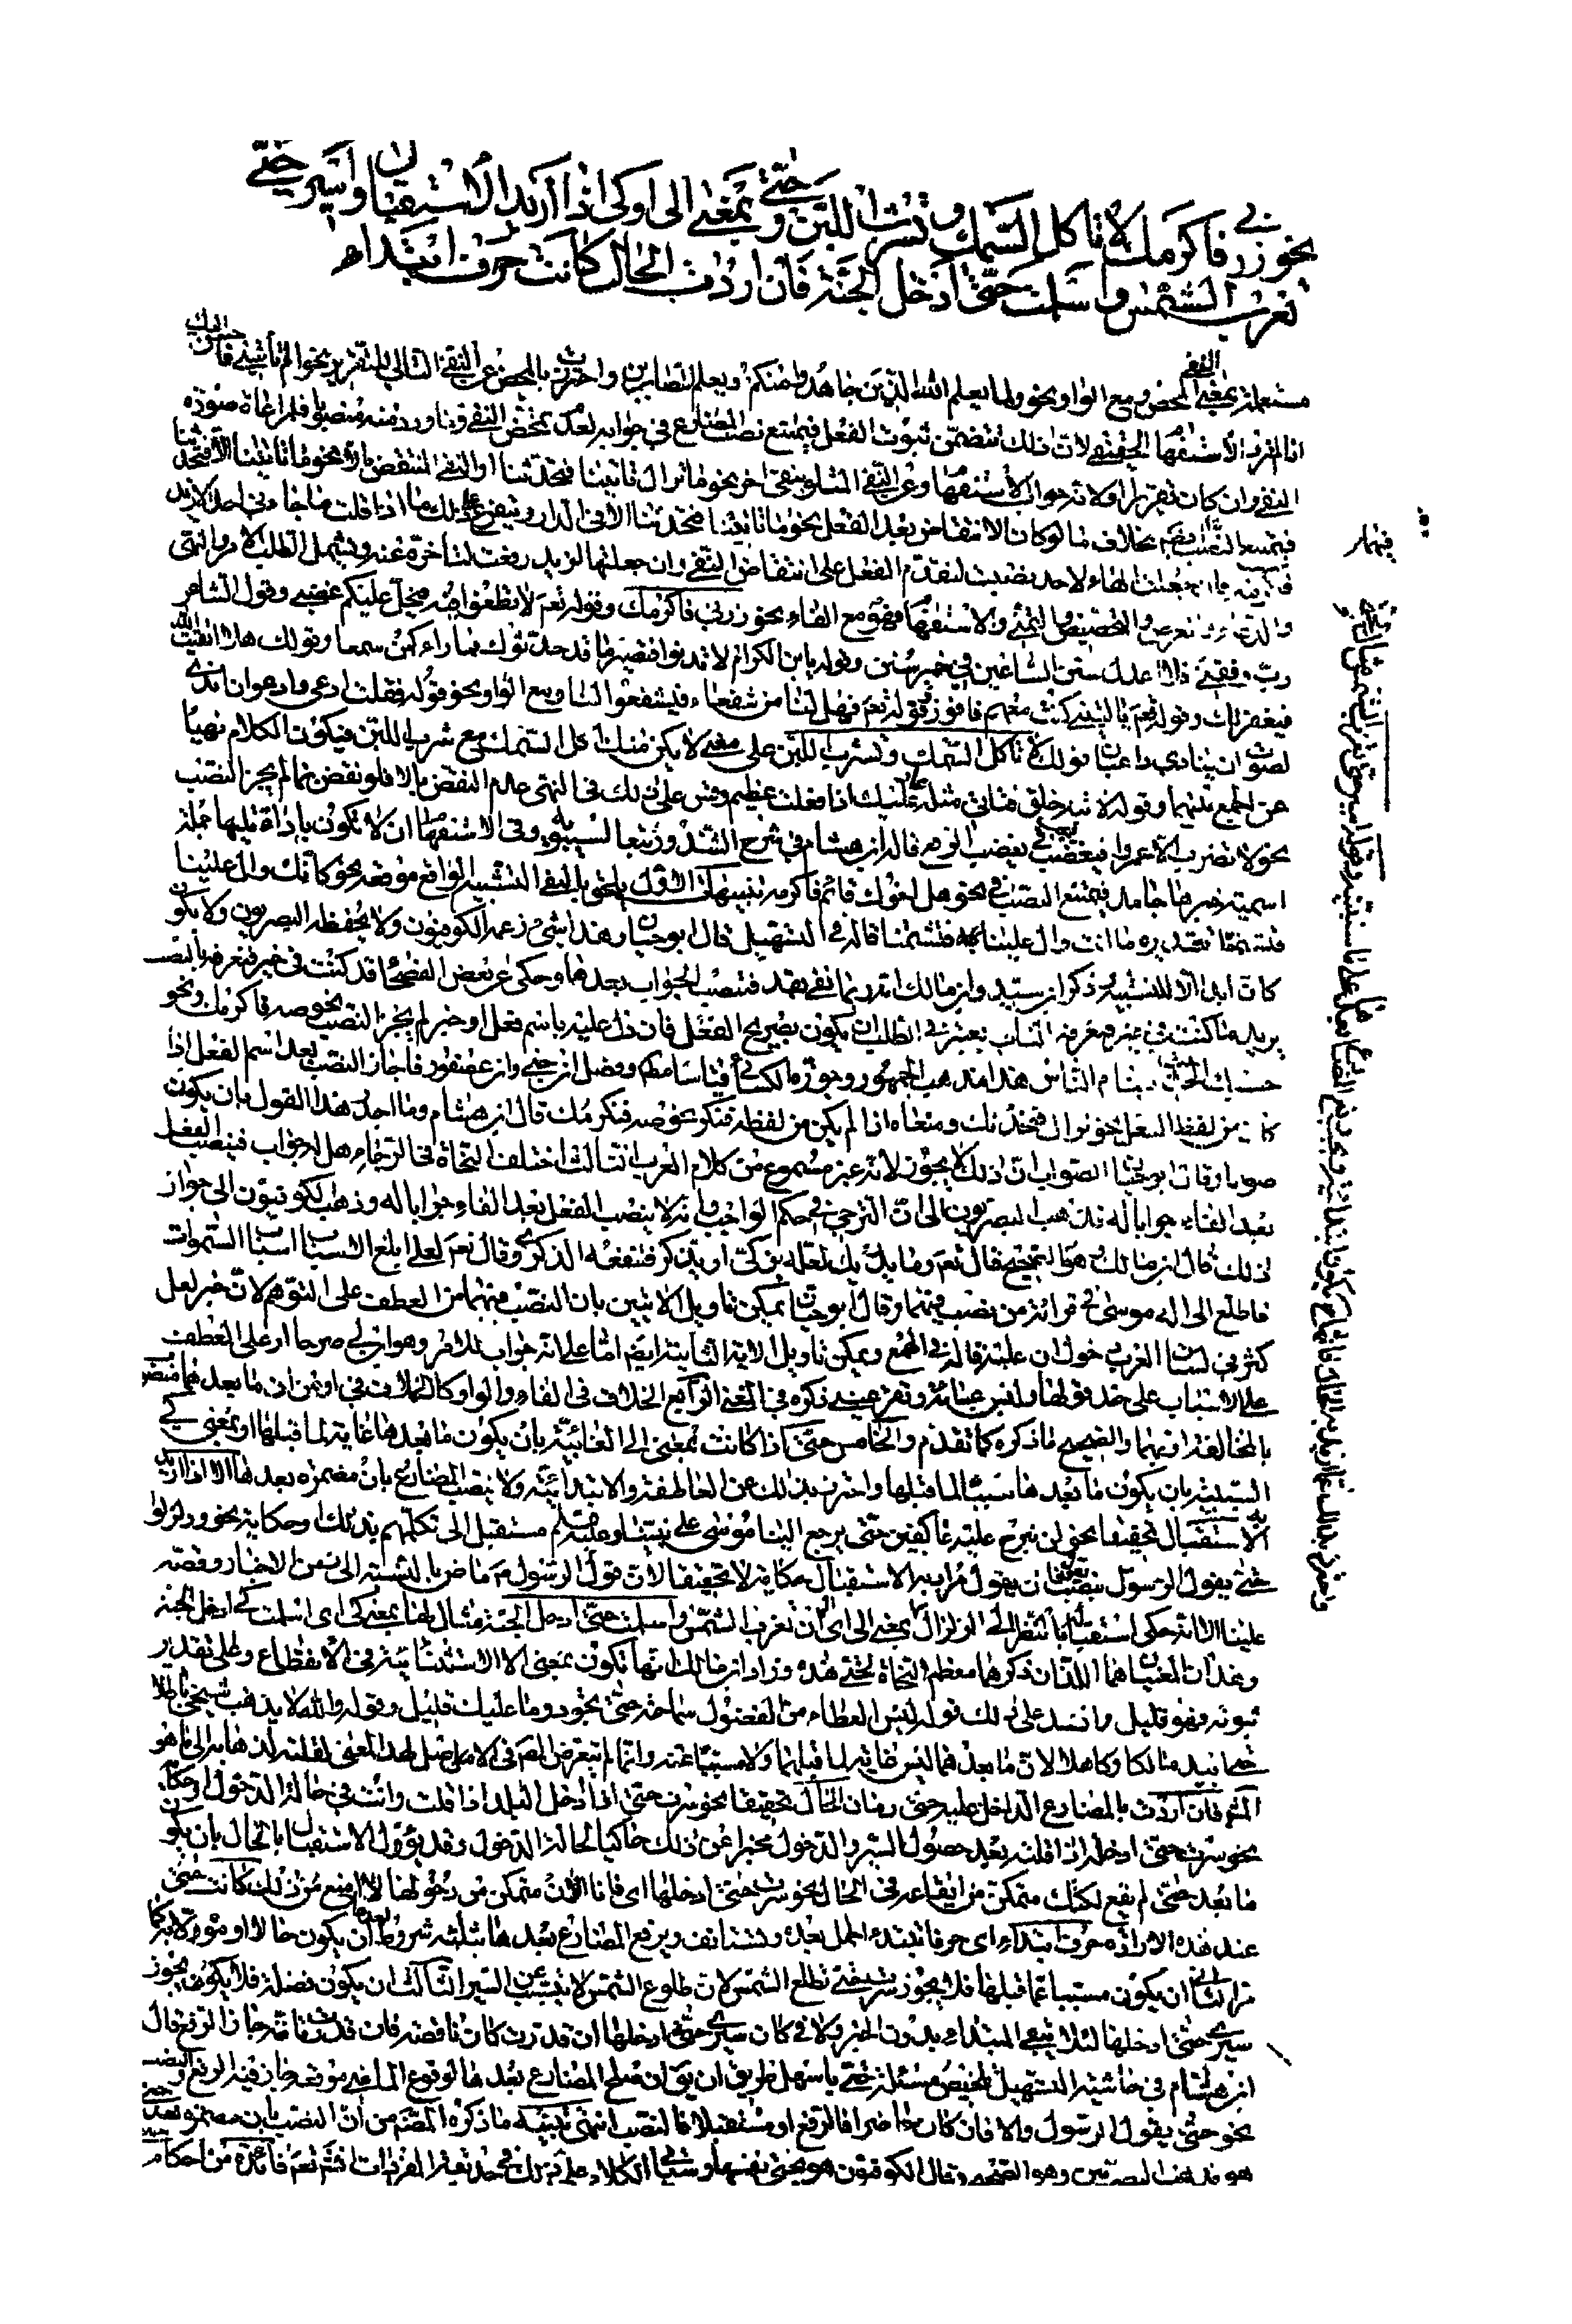 نحو زرني فأكرمك لا تأكل السمك وتشرب اللبن وحتى بمعنى الى او كي اذا اريد الاستقبال نحو اسير حتى
تغرب الشمس واسلمت حتى ادخل الجنة فان اردت الحال كانت حرف ابتداء
مستعملة بمعنى النفي المحض ومع الواو نحو ولما يعلم الله الذين جاهدوا منكم ويعلم الصابرين واحترز بالمحض عن النفي التالي للتقرير نحو الم تأتني فاحسن اليك
اذا لم ترد الاستفهام الحقيقي لان ذلك تتضمن ثبوت الفعل فيمتنع نصب المضارع في جوابه لعدم تمحض النفي وما ورد منه منصوبا فلمراعاة صورة
النفي وان كان تقريرا ولانه جواب الاستفهام وعن النفي المتلو بنفي اخر نحو ما تزال تأتينا فتحدثنا او النفي المنتقض بالا نحو ما تأتينا الا فتحدثنا
فيمتنع النصب بخلاف ما لو كان الانتقاض بعد الفعل نحو ما تأتينا فتحدثنا الا في الدار ويتفرع على ذلك ما اذا قلت ما جاءني احد الا زيد
فأكرمه فان جعلت الهاء لاحد نصبت لتقدم الفعل على انتقاض النفي وان جعلتها لزيد رفعت لتأخره عنه ويشمل الطلب الامر والنهي
والدعاء والعرض والتحضيض والتمني والاستفهام فهو مع الفاء نحو زرني فاكرمك وقوله تعم لا تطغوا فيه فيحل عليكم غضبي وقول الشاعر
رب وفقني فلا اعدل عن سنن الساعين في خير سنن وقوله يا بن الكرام الا تدنو فتبصر ما قد حدثوك فما راء كمن سمعا وقولك هلا اتقيت الله
فيغفر لك وقوله تعم يا ليتني كنت معهم فافوز وقوله تعم فهل لنا من شفعاء فيشفعوا لنا ومع الواو نحو قوله فقلت ادعي وادعو ان اندى
لصوت ان ينادي داعيان وقولك لا تأكل السمك وتشرب اللبن على معنى لا يكن منك اكل السمك مع شرب اللبن فيكون الكلام نهيا
عن الجمع بينهما وقوله لا تنه عن خلق وتأتي مثله عار عليك اذا فعلت عظيم وقس على ذلك في النهي عدم النقض بالا فلو نقض بها لم يجز النصب
نحو لا تضرب الا عمروا فيغضب يجب في يغضب الرفع قاله ابن هشام في شرح الشذور تبعا لسيبويه وفي الاستفهام ان لا تكون باداة تليها جملة
اسمية خبرها جامد فيمتنع النصب في نحو هل اخوك قائم فأكرمه تنبيهات الاول يلحق بالنفي التشبيه الواقع موقعه نحو كانك وال علينا
فتشتمنا تقديره ما انت وال علينا فتشتمنا قاله في التسهيل قال ابو حيان وهذا شيء زعمه الكوفيون ولا يحفظه البصريون ولا يكون
كأن ابدا الا للتشبيه وذكر ابن سيده وابن مالك انه ربما نفي بقد فنصب الجواب بعدها وحكى عن بعض الفصحاء قد كنت في خير فتعرفه بالنصب
يريد ما كنت في خير فتعرفه الثاني يعتبر في الطلب ان يكون بصريح الفعل فان دل عليه باسم فعل او خبر لم يجز النصب نحو صه فاكرمك ونحو
حسبك الحديث فينام الناس هذا مذهب الجمهور وجوزه الكسائي قياسا مطلقا وفصل ابن جني وابن عصفور فاجازا النصب بعد اسم الفعل اذا
كان من لفظ الفعل نحو نزال فنحدثك ومنعاه اذا لم يكن من لفظه نحو صه فنكرمك قال ابن هشام وما اجدر هذا القول بان يكون
صوابا وقال ابو حيان الصواب ان ذلك لا يجوز لانه غير مسموع من كلام العرب الثالث اختلف النحاة في الترجي هل له جواب فينصب الفعل
بعد الفاء جوابا له فذهب البصريون الى ان الترجي في حكم الواجب وانه لا ينصب الفعل بعد الفاء جوابا له وذهب الكوفيون الى جواز
ذلك قال ابن مالك وهو الصحيح قال تعم وما يدريك لعله يزكى او يذكر فتنفعه الذكرى وقال تعم لعلي ابلغ الاسباب اسباب السموات
فاطلع الى اله موسى في قرائة من نصب فيهما وقال ابو حيان يمكن تأويل الايتين بان النصب فيهما من العطف على التوهم لان خبر لعل
كثر في لسان العرب دخول ان عليه قاله في الهمع ويمكن تأويل الاية الثانية ايضا اما على انه جواب للامر وهو ابن لي صرحا او على العطف
على الاسباب على حد قولها ولبس عباءة وتقر عيني ذكره في المغني الرابع الخلاف في الفاء والواو كالخلاف في او من ان ما بعدهما منصوب
بالمخالفة او بهما والصحيح ما ذكره كما تقدم والخامس حتى اذا كانت بمعنى الى الغائية بان يكون ما بعدها غاية لما قبلها او بمعنى كي
السببية بان يكون ما بعدها مسببا لما قبلها واحترز بذلك عن العاطفة والابتدائية ولا ينصب المضارع بان مضمرة بعدها الا اذا اريد
به الاستقبال تحقيقا نحو لن نبرح عليه عاكفين حتى يرجع الينا موسى على نبينا وعليه السلم مستقبل الى تكلمهم بذلك او حكاية نحو وزلزلوا
حتى يقول الرسول بنصب يقول مرادا به الاستقبال حكاية لا تحقيقا لان قول الرسول ماض بالنسبة الى زمن الاخبار وقصه
علينا الا انه حكى استقباله بالنظر الى الزلزال بمعنى الى اي الى ان تغرب الشمس واسلمت حتى ادخل الجنة مثال لها بمعنى كي اي اسلمت كي ادخل الجنة
وهذان المعنيان هما اللذان ذكرهما معظم النحاة لحتى هذه وزاد ابن مالك انها تكون بمعنى الا الاستثنائية في الانقطاع وعلى تقدير
ثبوته فهو قليل وانشد على ذلك قوله ليس العطاء من الفضول سماحة حتى تجود وما لديك قليل وقوله والله لا يذهب شيخي باطلا
حتى ابيد مالكا وكاهلا لان ما بعدها ليس غاية لما قبلها ولا مسببا عنه وانما لم يتعرض المصنف في الاصل لهذا المعنى لقلته
فان اردت بالمضارع الداخل عليه حتى زمان الحال تحقيقا نحو سرت حتى ادخل البلد اذا قلت وانت في حالة الدخول او حكاية
نحو سرت حتى ادخلها اذا قلته بعد حصول السير والدخول مخبرا عن ذلك حاكيا لحالة الدخول وقد يؤول الاستقبال بالحال بان يكون
ما بعد حتى لم يقع لكنك متمكن من ايقاعه في الحال نحو سرت حتى ادخلها اي فانا الان متمكن من دخولها لا امنع من ذلك كانت حتى
عند هذه الارادة حرف ابتداء اي حرفا تبتدء الجمل بعده وتستأنف ويرفع المضارع بعدها بثلثة شروط ان يكون حالا او مؤولا به كما
مر الثاني ان يكون مسببا عما قبلها فلا يجوز سرت حتى تطلع الشمس لان طلوع الشمس لا يتسبب عن السير الثالث ان يكون فضلة فلا يجوز
سيري حتى ادخلها لئلا يبقى المبتداء بدون الخبر ولا في كان سيري حتى ادخلها ان قدرت كان ناقصة فان قدرت تامة جاز الرفع قال
ابن هشام في حاشية التسهيل تلخيص مسئلة حتى باسهل طريق ان يق ان صلح المضارع بعدها لوقوع الماضي موقعه جاز فيه الرفع والنصب
نحو حتى يقول الرسول والا فان كان حاضرا فالرفع او مستقبلا فالنصب انتهى تنبيه ما ذكره المصنف من ان النصب بان مضمرة بعد حتى
هو مذهب البصريين وهو الصحيح وقال الكوفيون هو بحتى نفسها وسيأتي الكلام على ذلك في حديقة المفردات انشاء الله تعم فائدة من احكام